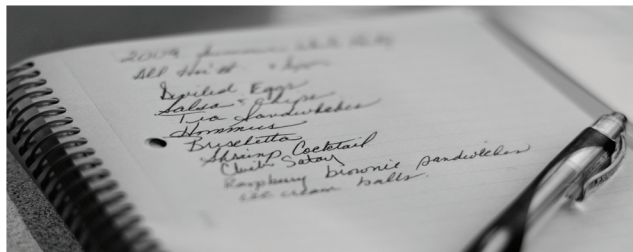 2009 Summer White Party
All
Deviled Eggs
Salsa + Chips
Tea Sandwhches
Hommus
Bruschetta
Shrimp Cocktail
Satay
Raspberry brownie sandwiches
ice cream balls